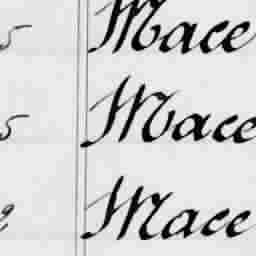 5 Mace
5 Mace
2 Mace